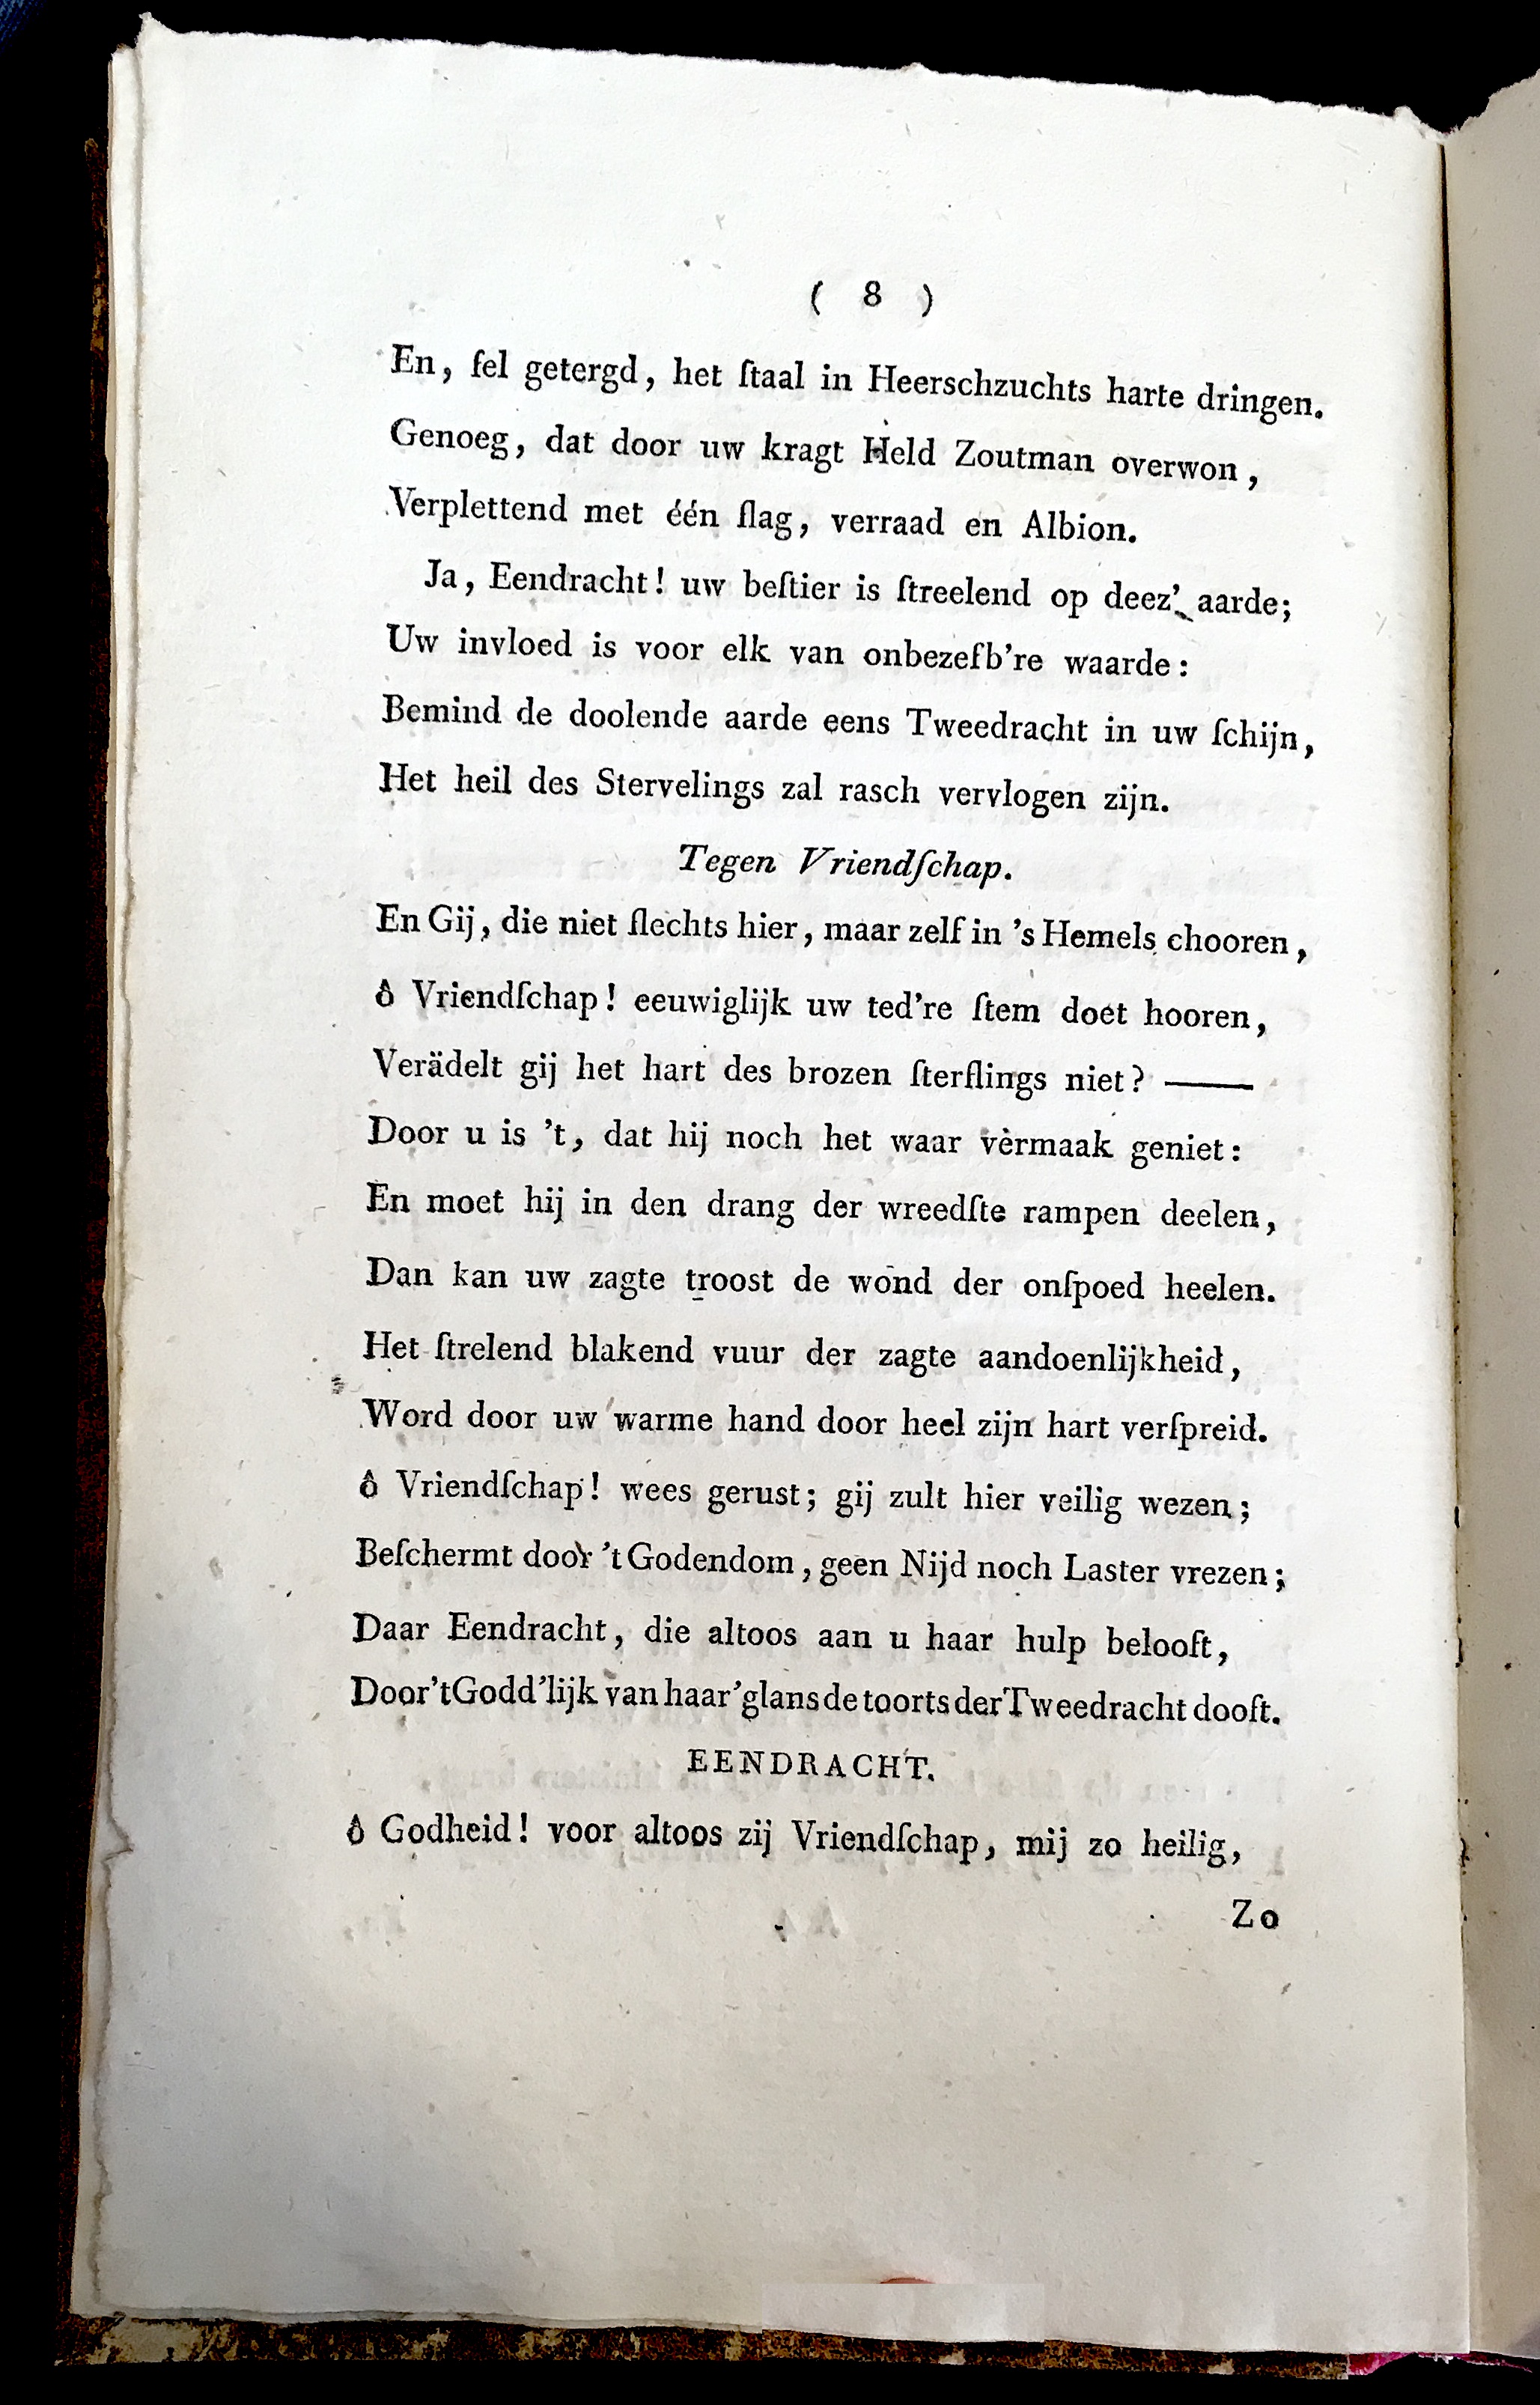 ( 8 )
En, fel getergd, het ſtaal in Heerschzuchts harte dringen.
Genoeg, dat door uw kragt Held Zoutman overwon,
Verplettend met één ſlag, verraad en Albion.
Ja, Eendracht! uw beſtier is ſtreelend op deez' aarde;
Uw invloed is voor elk van onbezefb're waarde:
Bemind de doolende aarde eens Tweedracht in uw ſchijn,
Het heil des Stervelings zal rasch vervlogen zijn.
Tegen Vriendſchap.
En Gij, die niet ſlechts hier, maar zelf in 's Hemels chooren,
ô Vriendſchap! eeuwiglijk uw ted're ſtem doet hooren,
Verädelt gij het hart des brozen ſterflings niet? ——
Door u is 't, dat hij noch het waar vermaak geniet:
En moet hij in den drang der wreedſte rampen deelen,
Dan kan uw zagte troost de wond der onſpoed heelen.
Het ſtrelend blakend vuur der zagte aandoenlijkheid,
Word door uw warme hand door heel zijn hart verſpreid.
ô Vriendſchap! wees gerust; gij zult hier veilig wezen;
Beſchermt door 't Godendom, geen Nijd noch Laster vrezen;
Daar Eendracht, die altoos aan u haar hulp belooft,
Door 't Godd'lijk van haar' glans de toorts der Tweedracht dooft.
EENDRACHT.
ô Godheid! voor altoos zij Vriendſchap, mij zo heilig,
Zo